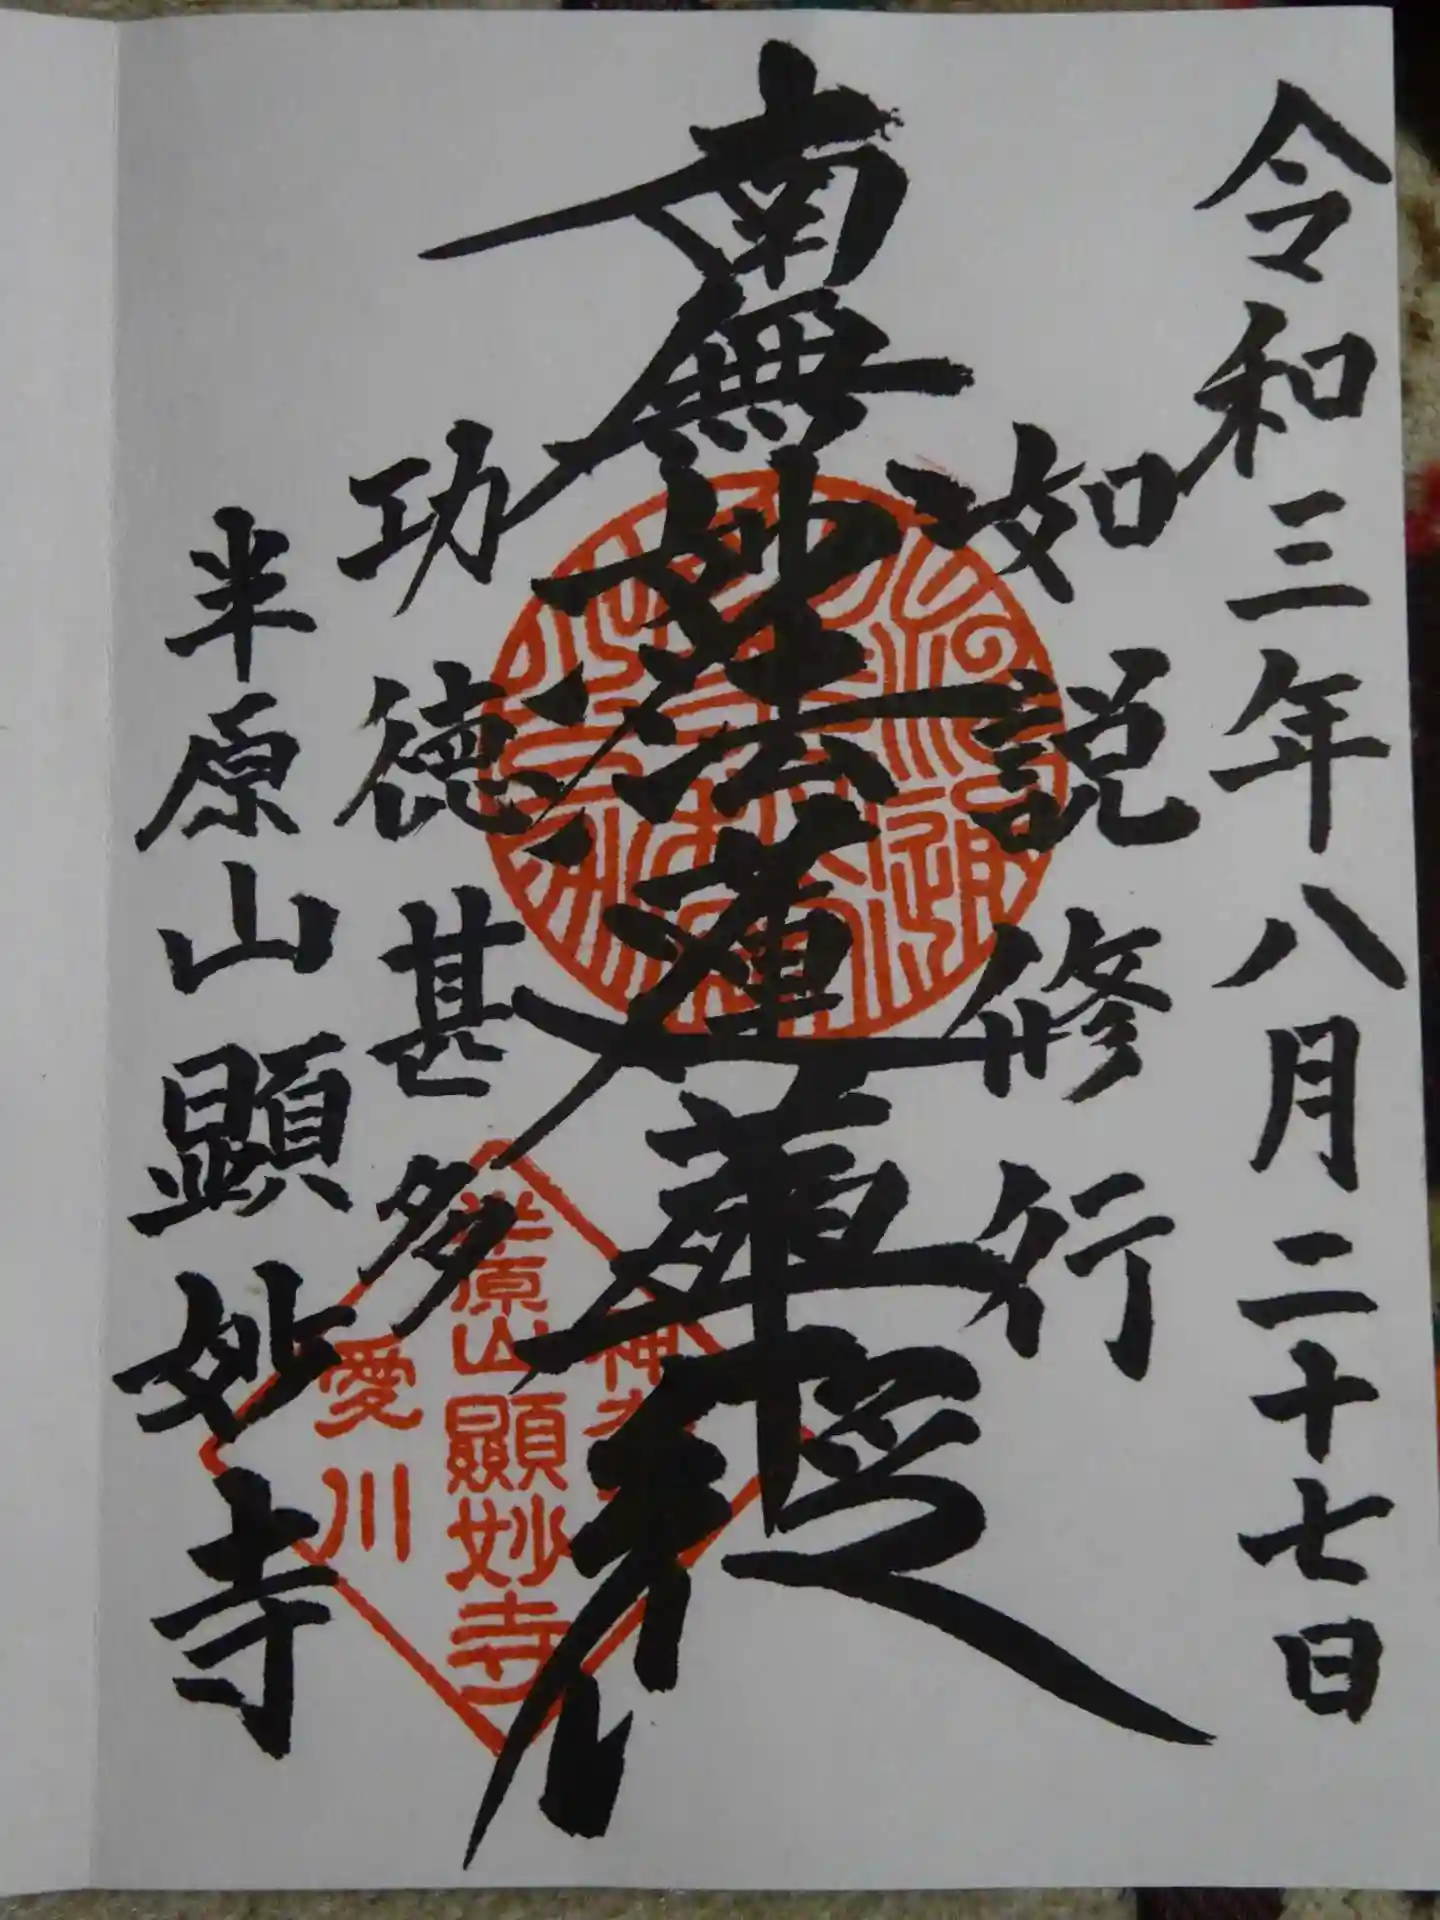 令和三年八月二十七日
如説修行
南無妙法蓮華経
功徳甚多
半原山顕妙寺
神奈
半原山顯妙寺
愛川